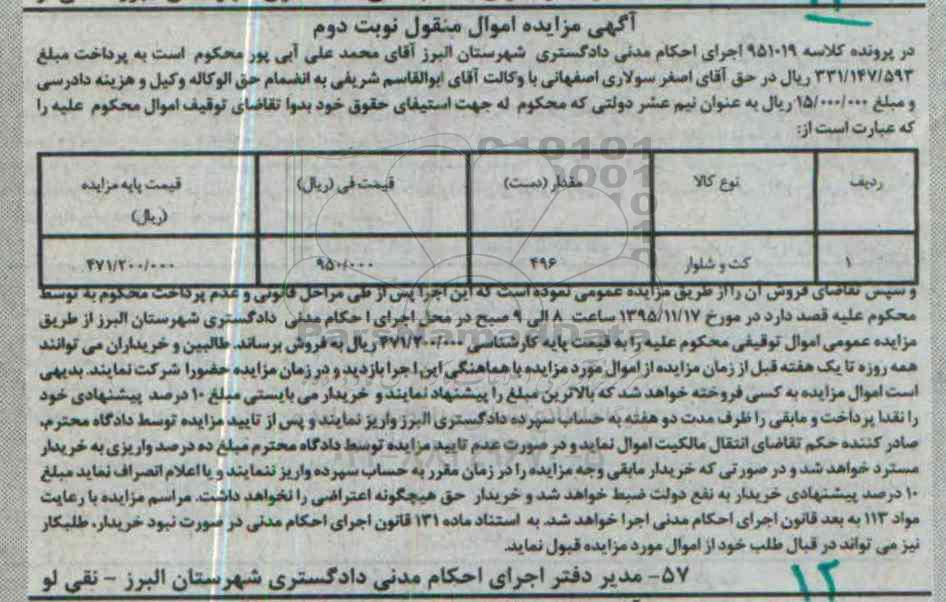 آگهی مزایده اموال منقول نوبت دوم
در پرونده کلاسه ۹۵۱۰۱۹ اجرای احکام مدنی دادگستری شهرستان البرز آقای محمد علی آبی پور محکوم است به پرداخت مبلغ
۳۳۱/۱۴۷/۵۹۳ ریال در حق آقای اصغر سولاری اصفهانی با وکالت آقای ابوالقاسم شریفی به انضمام حق الوکاله وکیل و هزینه دادرسی
و مبلغ ۱۵/۰۰۰/۰۰۰ ریال به عنوان نیم عشر دولتی که محکوم له جهت استیفای حقوق خود بدوا تقاضای توقیف اموال محکوم علیه را
که عبارت است از:
ردیف نوع کالا مقدار (دست) قیمت فی (ریال) قیمت پایه مزایده
(ریال)
۱ کت و شلوار ۴۹۶ ۹۵۰/۰۰۰ ۴۷۱/۲۰۰/۰۰۰
و سپس تقاضای فروش آن را از طریق مزایده عمومی نموده است که این اجرا پس از طی مراحل قانونی و عدم پرداخت محکوم به توسط
محکوم علیه قصد دارد در مورخ ۱۳۹۵/۱۱/۱۷ ساعت ۸ الی ۹ صبح در محل اجرای احکام مدنی دادگستری شهرستان البرز از طریق
مزایده عمومی اموال توقیفی محکوم علیه را به قیمت پایه کارشناسی ۴۷۱/۲۰۰/۰۰۰ ریال به فروش برساند. طالبین و خریداران می توانند
همه روزه تا یک هفته قبل از زمان مزایده از اموال مورد مزایده با هماهنگی این اجرا بازدید و در زمان مزایده حضورا شرکت نمایند. بدیهی
است اموال مزایده به کسی فروخته خواهد شد که بالاترین مبلغ را پیشنهاد نمایند و خریدار می بایستی مبلغ ۱۰ درصد پیشنهادی خود
را نقدا پرداخت و مابقی را ظرف مدت دو هفته به حساب سپرده دادگستری البرز واریز نمایند و پس از تایید مزایده توسط دادگاه محترم،
صادر کننده حکم تقاضای انتقال مالکیت اموال نماید و در صورت عدم تایید مزایده توسط دادگاه محترم مبلغ ده درصد واریزی به خریدار
مسترد خواهد شد و در صورتی که خریدار مابقی وجه مزایده را در زمان مقرر به حساب سپرده واریز ننمایند و یا اعلام انصراف نماید مبلغ
۱۰ درصد پیشنهادی خریدار به نفع دولت ضبط خواهد شد و خریدار حق هیچگونه اعتراضی را نخواهد داشت. مراسم مزایده با رعایت
مواد ۱۱۳ به بعد قانون اجرای احکام مدنی اجرا خواهد شد. به استناد ماده ۱۳۱ قانون اجرای احکام مدنی در صورت نبود خریدار، طلبکار
نیز می تواند در قبال طلب خود از اموال مورد مزایده قبول نماید.
۵۷- مدیر دفتر اجرای احکام مدنی دادگستری شهرستان البرز - نقی لو
۱۲
ParsNamadData